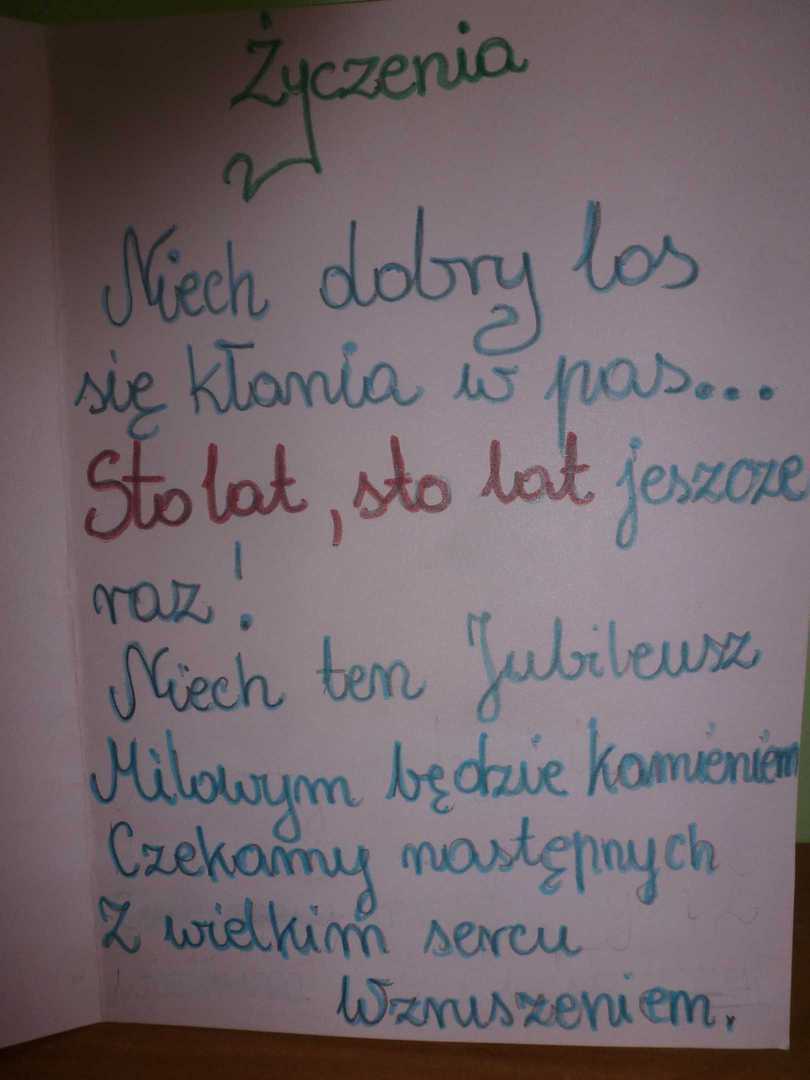 Życzenia
Niech dobry los
się kłania w pas...
Sto lat, sto lat jeszcze
raz!
Niech ten Jubileusz
Milowym będzie kamieniem
Czekamy następnych
Z wielkim sercu
Wzruszeniem.